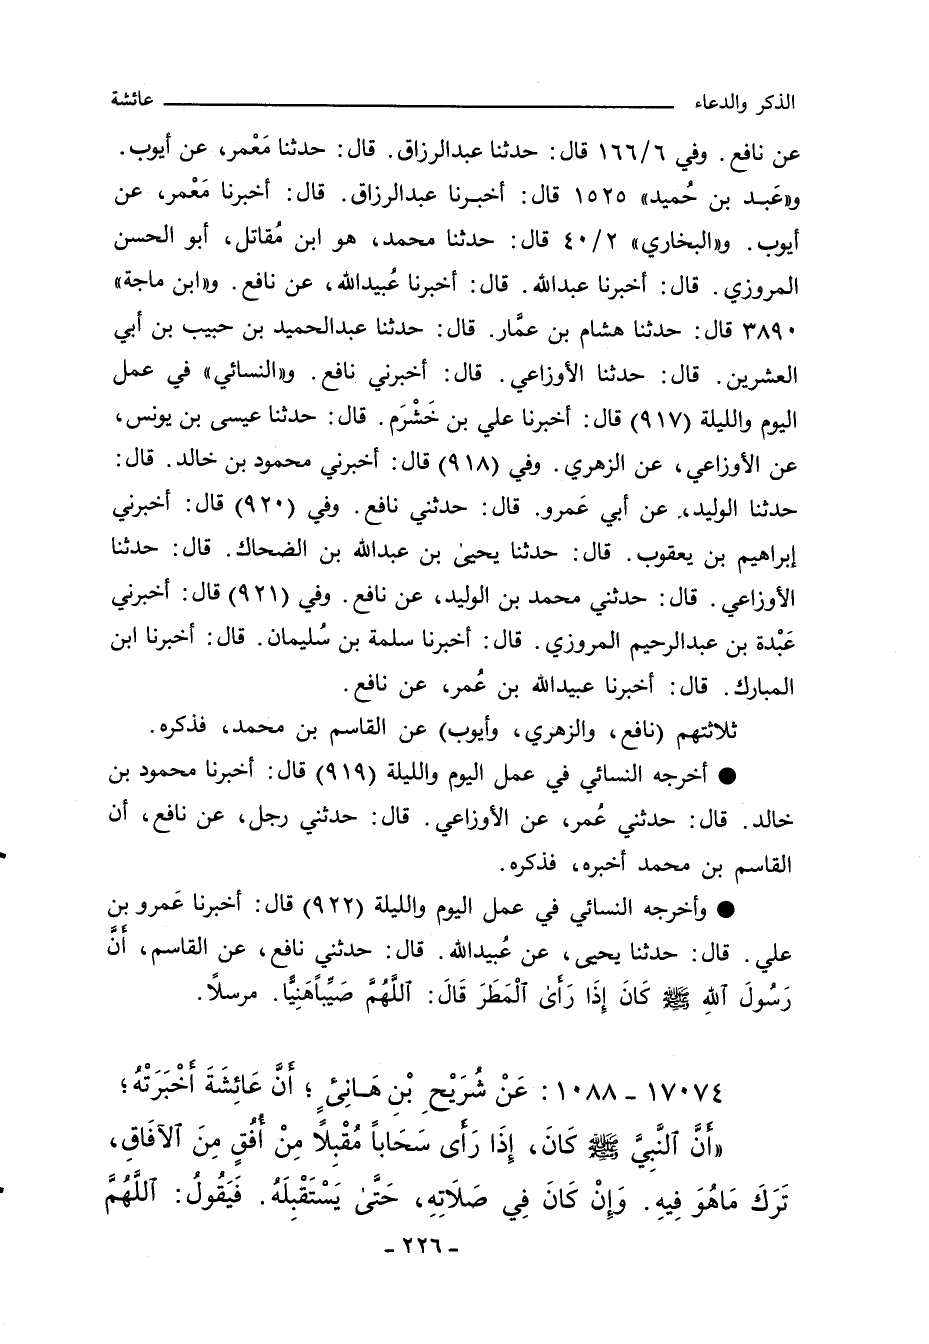 الذكر والدعاء ـــــــــــــــــــــــــ عائشة
عن نافع. وفي ١٦٦/٦ قال: حدثنا عبدالرزاق. قال: حدثنا مَعْمر، عن أيوب.
و«عَبد بن حُميد» ١٥٢٥ قال: أخبرنا عبدالرزاق. قال: أخبرنا مَعْمر، عن
أيوب. و«البخاري» ٤٠/٢ قال: حدثنا محمد، هو ابن مُقاتل، أبو الحسن
المروزي. قال: أخبرنا عبدالله. قال: أخبرنا عُبيدالله، عن نافع. و«ابن ماجة»
٣٨٩٠ قال: حدثنا هشام بن عمَّار. قال: حدثنا عبدالحميد بن حبيب بن أبي
العشرين. قال: حدثنا الأوزاعي. قال: أخبرني نافع. و«النسائي» في عمل
اليوم والليلة (٩١٧) قال: أخبرنا علي بن خَشْرَم. قال: حدثنا عيسى بن يونس،
عن الأوزاعي، عن الزهري. وفي (٩١٨) قال: أخبرني محمود بن خالد. قال:
حدثنا الوليد، عن أبي عَمرو. قال: حدثني نافع. وفي (٩٢٠) قال: أخبرني
إبراهيم بن يعقوب. قال: حدثنا يحيىٰ بن عبدالله بن الضحاك. قال: حدثنا
الأوزاعي. قال: حدثني محمد بن الوليد، عن نافع. وفي (٩٢١) قال: أخبرني
عَبْدة بن عبدالرحيم المروزي. قال: أخبرنا سلمة بن سُليمان. قال: أخبرنا ابن
المبارك. قال: أخبرنا عبيدالله بن عُمر، عن نافع.
ثلاثتهم (نافع، والزهري، وأيوب) عن القاسم بن محمد، فذكره.
● أخرجه النسائي في عمل اليوم والليلة (٩١٩) قال: أخبرنا محمود بن
خالد. قال: حدثني عُمر، عن الأوزاعي. قال: حدثني رجل، عن نافع، أن
القاسم بن محمد أخبره، فذكره.
● وأخرجه النسائي في عمل اليوم والليلة (٩٢٢) قال: أخبرنا عَمرو بن
علي. قال: حدثنا يحيى، عن عُبيدالله. قال: حدثني نافع، عن القاسم، أَنَّ
رَسُولَ ٱللهِ ﷺ كَانَ إِذَا رَأَىٰ ٱلْمَطَرَ قَالَ: ٱللَّهُمَّ صَيِّباًهَنِيًّا. مرسلاً.
١٧٠٧٤ - ١٠٨٨ : عَنْ شُرَيْحِ بْنِ هَانِئٍ ؛ أَنَّ عَائِشَةَ أَخْبَرَتْهُ ؛
«أَنَّ ٱلنَّبِيَّ ﷺ كَانَ، إِذَا رَأَى سَحَاباً مُقْبِلاً مِنْ أُفُقٍ مِنَ ٱلآفَاقِ،
تَرَكَ مَاهُوَ فِيهِ. وَإِنْ كَانَ فِي صَلَاتِهِ، حَتَّىٰ يَسْتَقْبِلَهُ. فَيَقُولُ: ٱللَّهُمَّ
- ٢٢٦ -